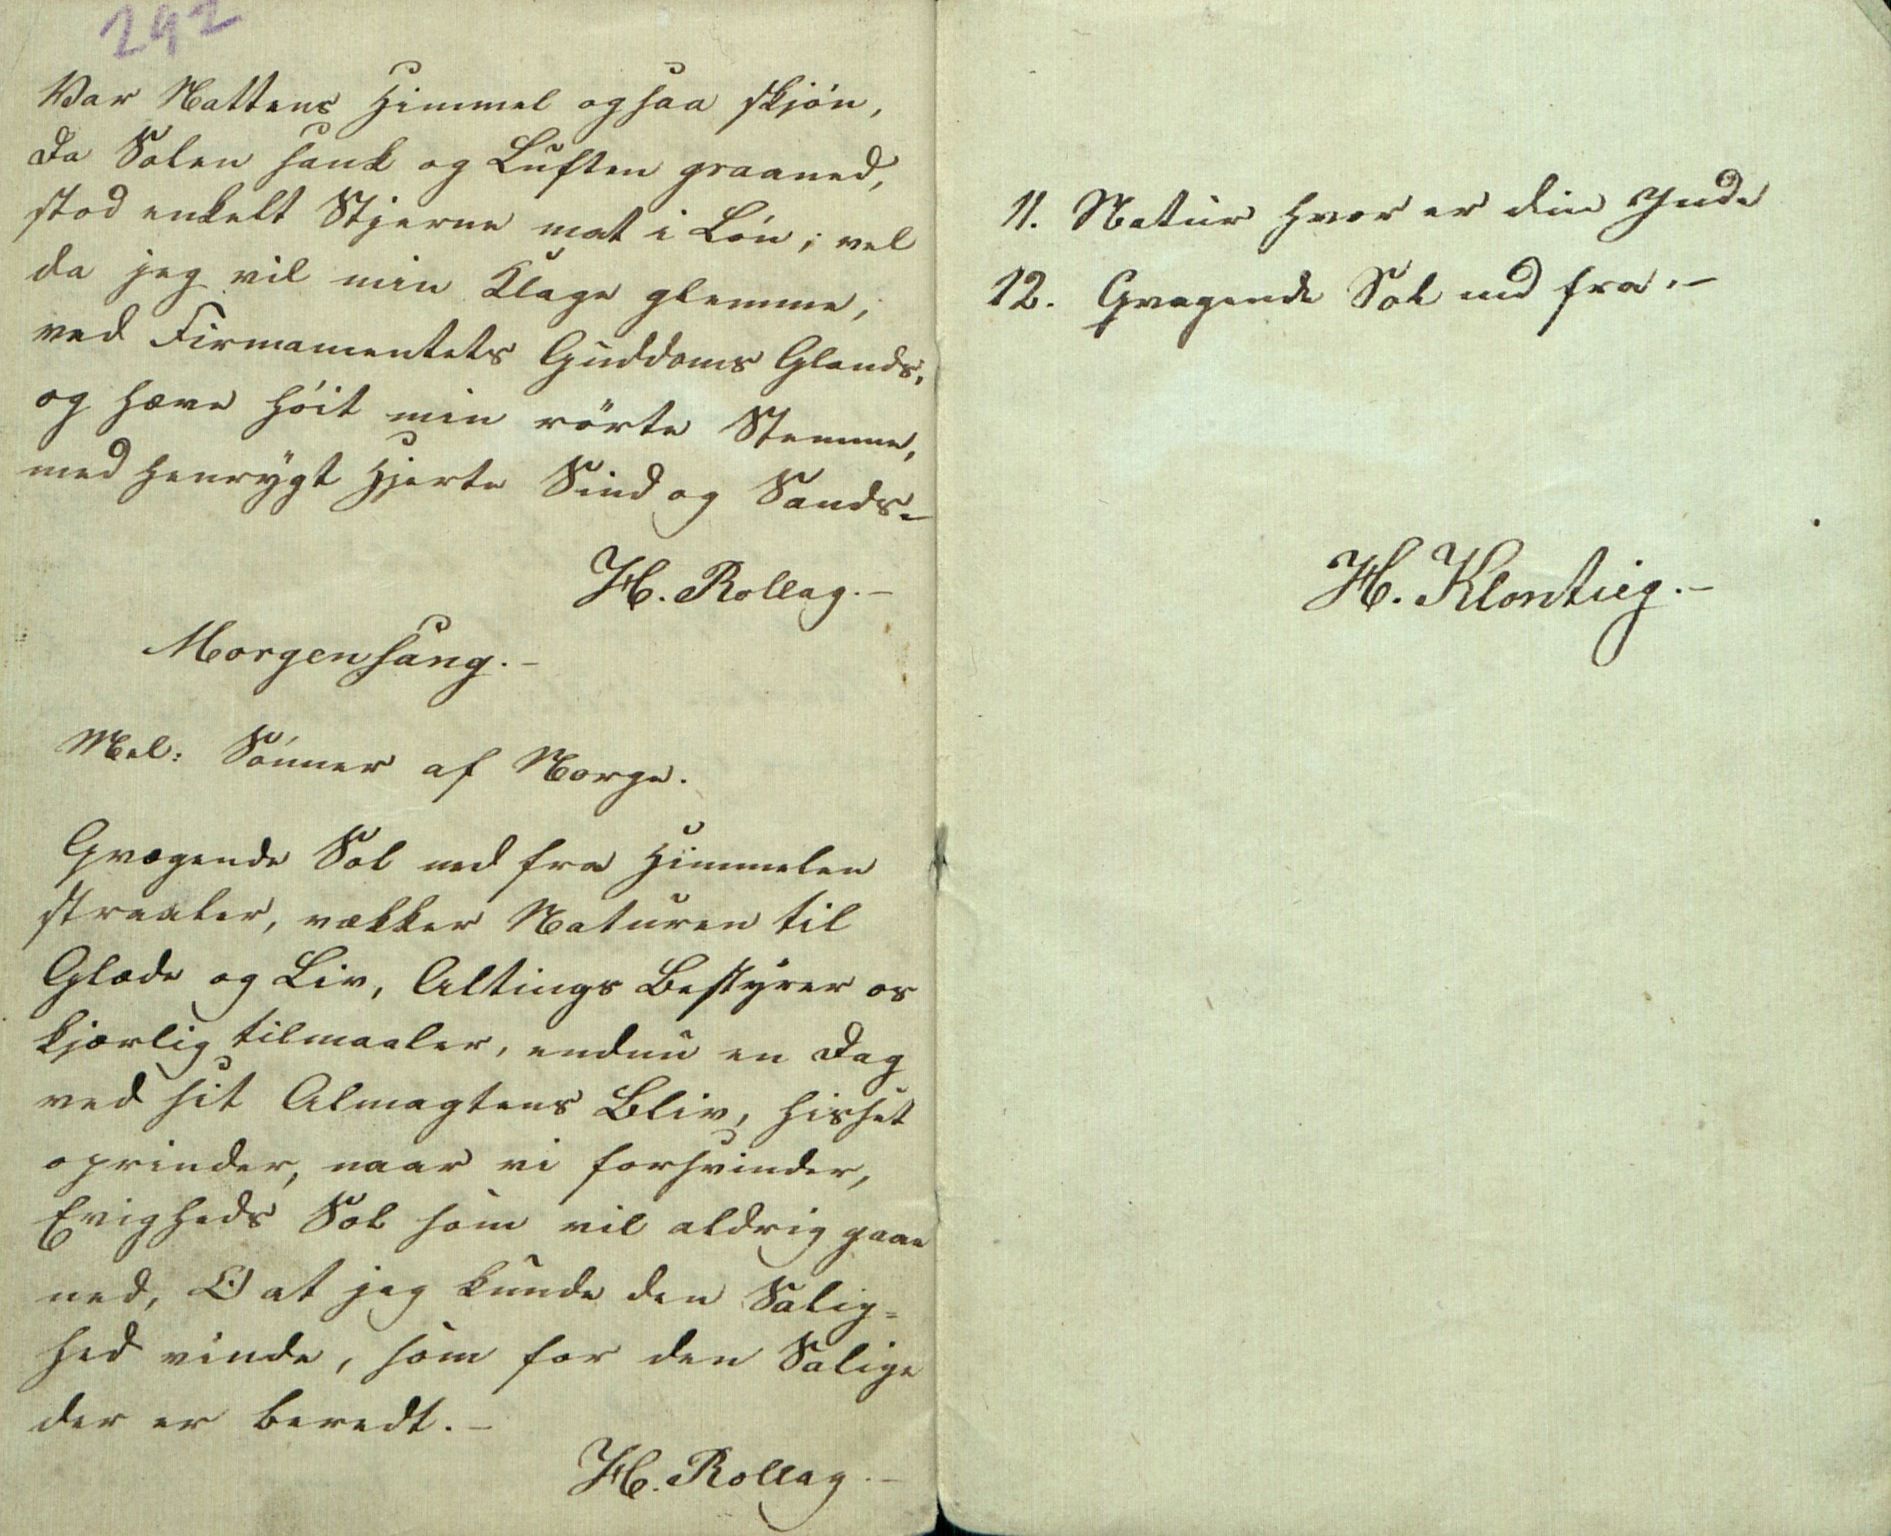 242
Var Nattens Himmel ogsaa skjøn,
da Solen sank og Luften graaned,
stod enkelt Stjerne mat i Løn; vel
da jeg vil min Klage glemme,
ved Firmamentets Guddoms Glands,
og hæve høit min rörte Stemme,
med henrygt Hjerte Sind og Sands.-
H. Rollag.-
Morgensang.-
Mel: Sønner af Norge.
Qvægende Sol ned fra Himmelen
straaler, vækker Naturen til
Glæde og Liv, Altings Bestyrer os
kjærlig tilmaaler, endnu en Dag
ved sit Almagtens Bliv, hisset
oprinder, naar vi forsvinder,
Evigheds Sol som vil aldrig gaae
ned, O at jeg kunde den Salig=
hed vinde, som for den Salige
der er beredt.-
H. Rollag.-
11. Natur hvor er din Ynde
12. Qvægende Sol ned fra.-
H. Klontieg.-